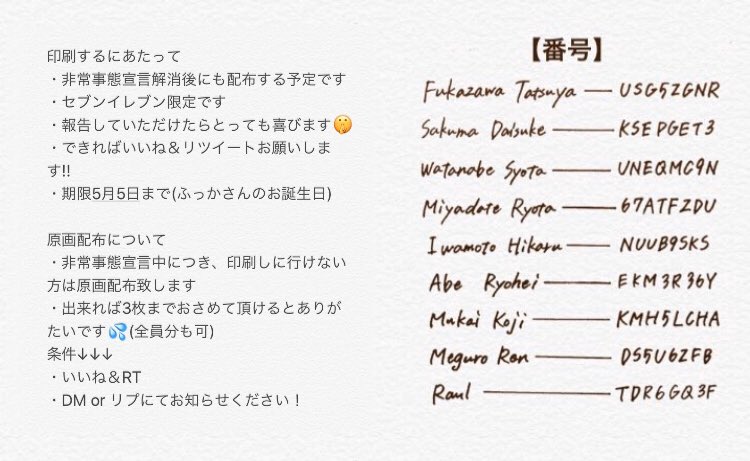 印刷するにあたって
・非常事態宣言解消後にも配布する予定です
・セブンイレブン限定です
・報告していただけたらとっても喜びます🤭
・できればいいね＆リツイートお願いしま
す!!
・期限5月5日まで(ふっかさんのお誕生日)
原画配布について
・非常事態宣言中につき、印刷しに行けない
方は原画配布致します
・出来れば3枚までおさめて頂けるとありが
たいです💦(全員分も可)
条件↓↓↓
・いいね＆RT
・DM or リプにてお知らせください！
【番号】
Fukazawa Tatsuya — USG5ZGNR
Sakuma Daisuke — KSEPGET3
Watanabe Syota — UNEQMC9N
Miyadate Ryota — 67ATFZDU
Iwamoto Hikaru — NUUB9SKS
Abe Ryohei — EKM3R36Y
Mukai Koji — KMH5LCHA
Meguro Ren — DS5U6ZFB
Raul — TDR6GQ3F